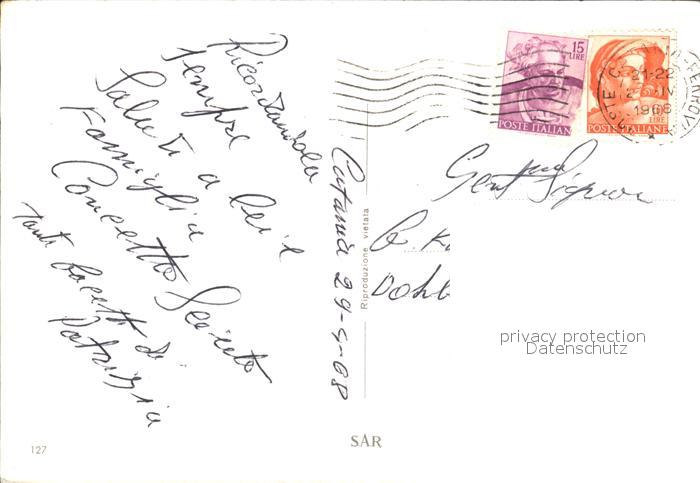 Ricordandola
sempre
Saluti a lei e
Famiglia
Concetto Scinto
tanti bacetti di
Patrizia
Catania 29-4-68
Riproduzione vietata
15
LIRE
POSTE ITALIANE
LIRE
POSTE ITALIANE
21-22
IV
1968
Gent Signor
G. K
Dohl
privacy protection
Datenschutz
127
SAR